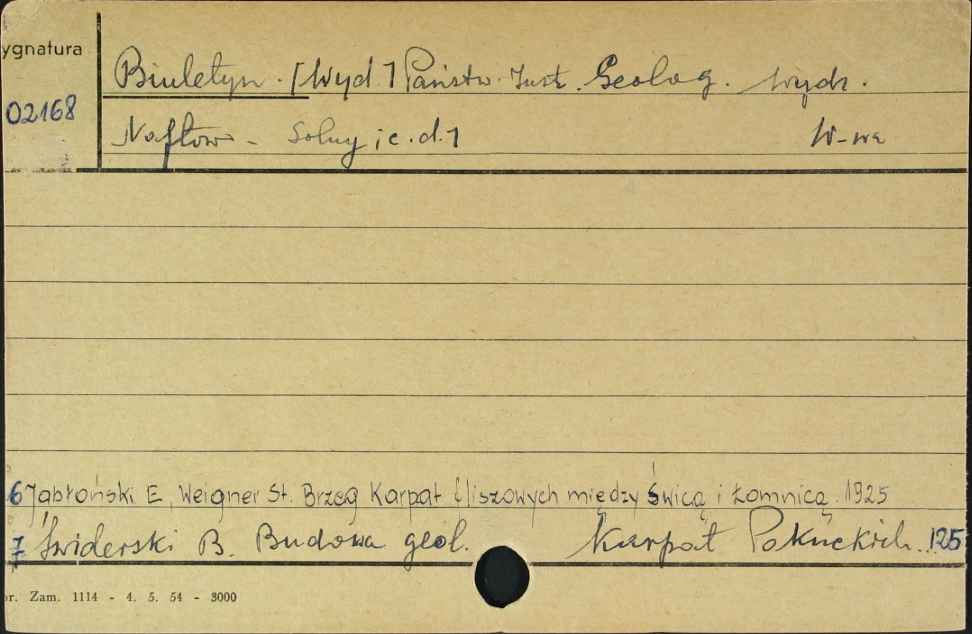 ygnatura
Biuletyn. [Wyd.] Państw. Inst. Geolog. Wydz.
02168
Naftow - Solny ; c.d.] W-wa
6 Jabłoński E, Weigner St. Brzeg Karpat fliszowych między Świcą i Łomnicą. 1925
7 Świderski B. Budowa geol. Karpat Pokuckich. 125
or. Zam. 1114 - 4. 5. 54 - 3000